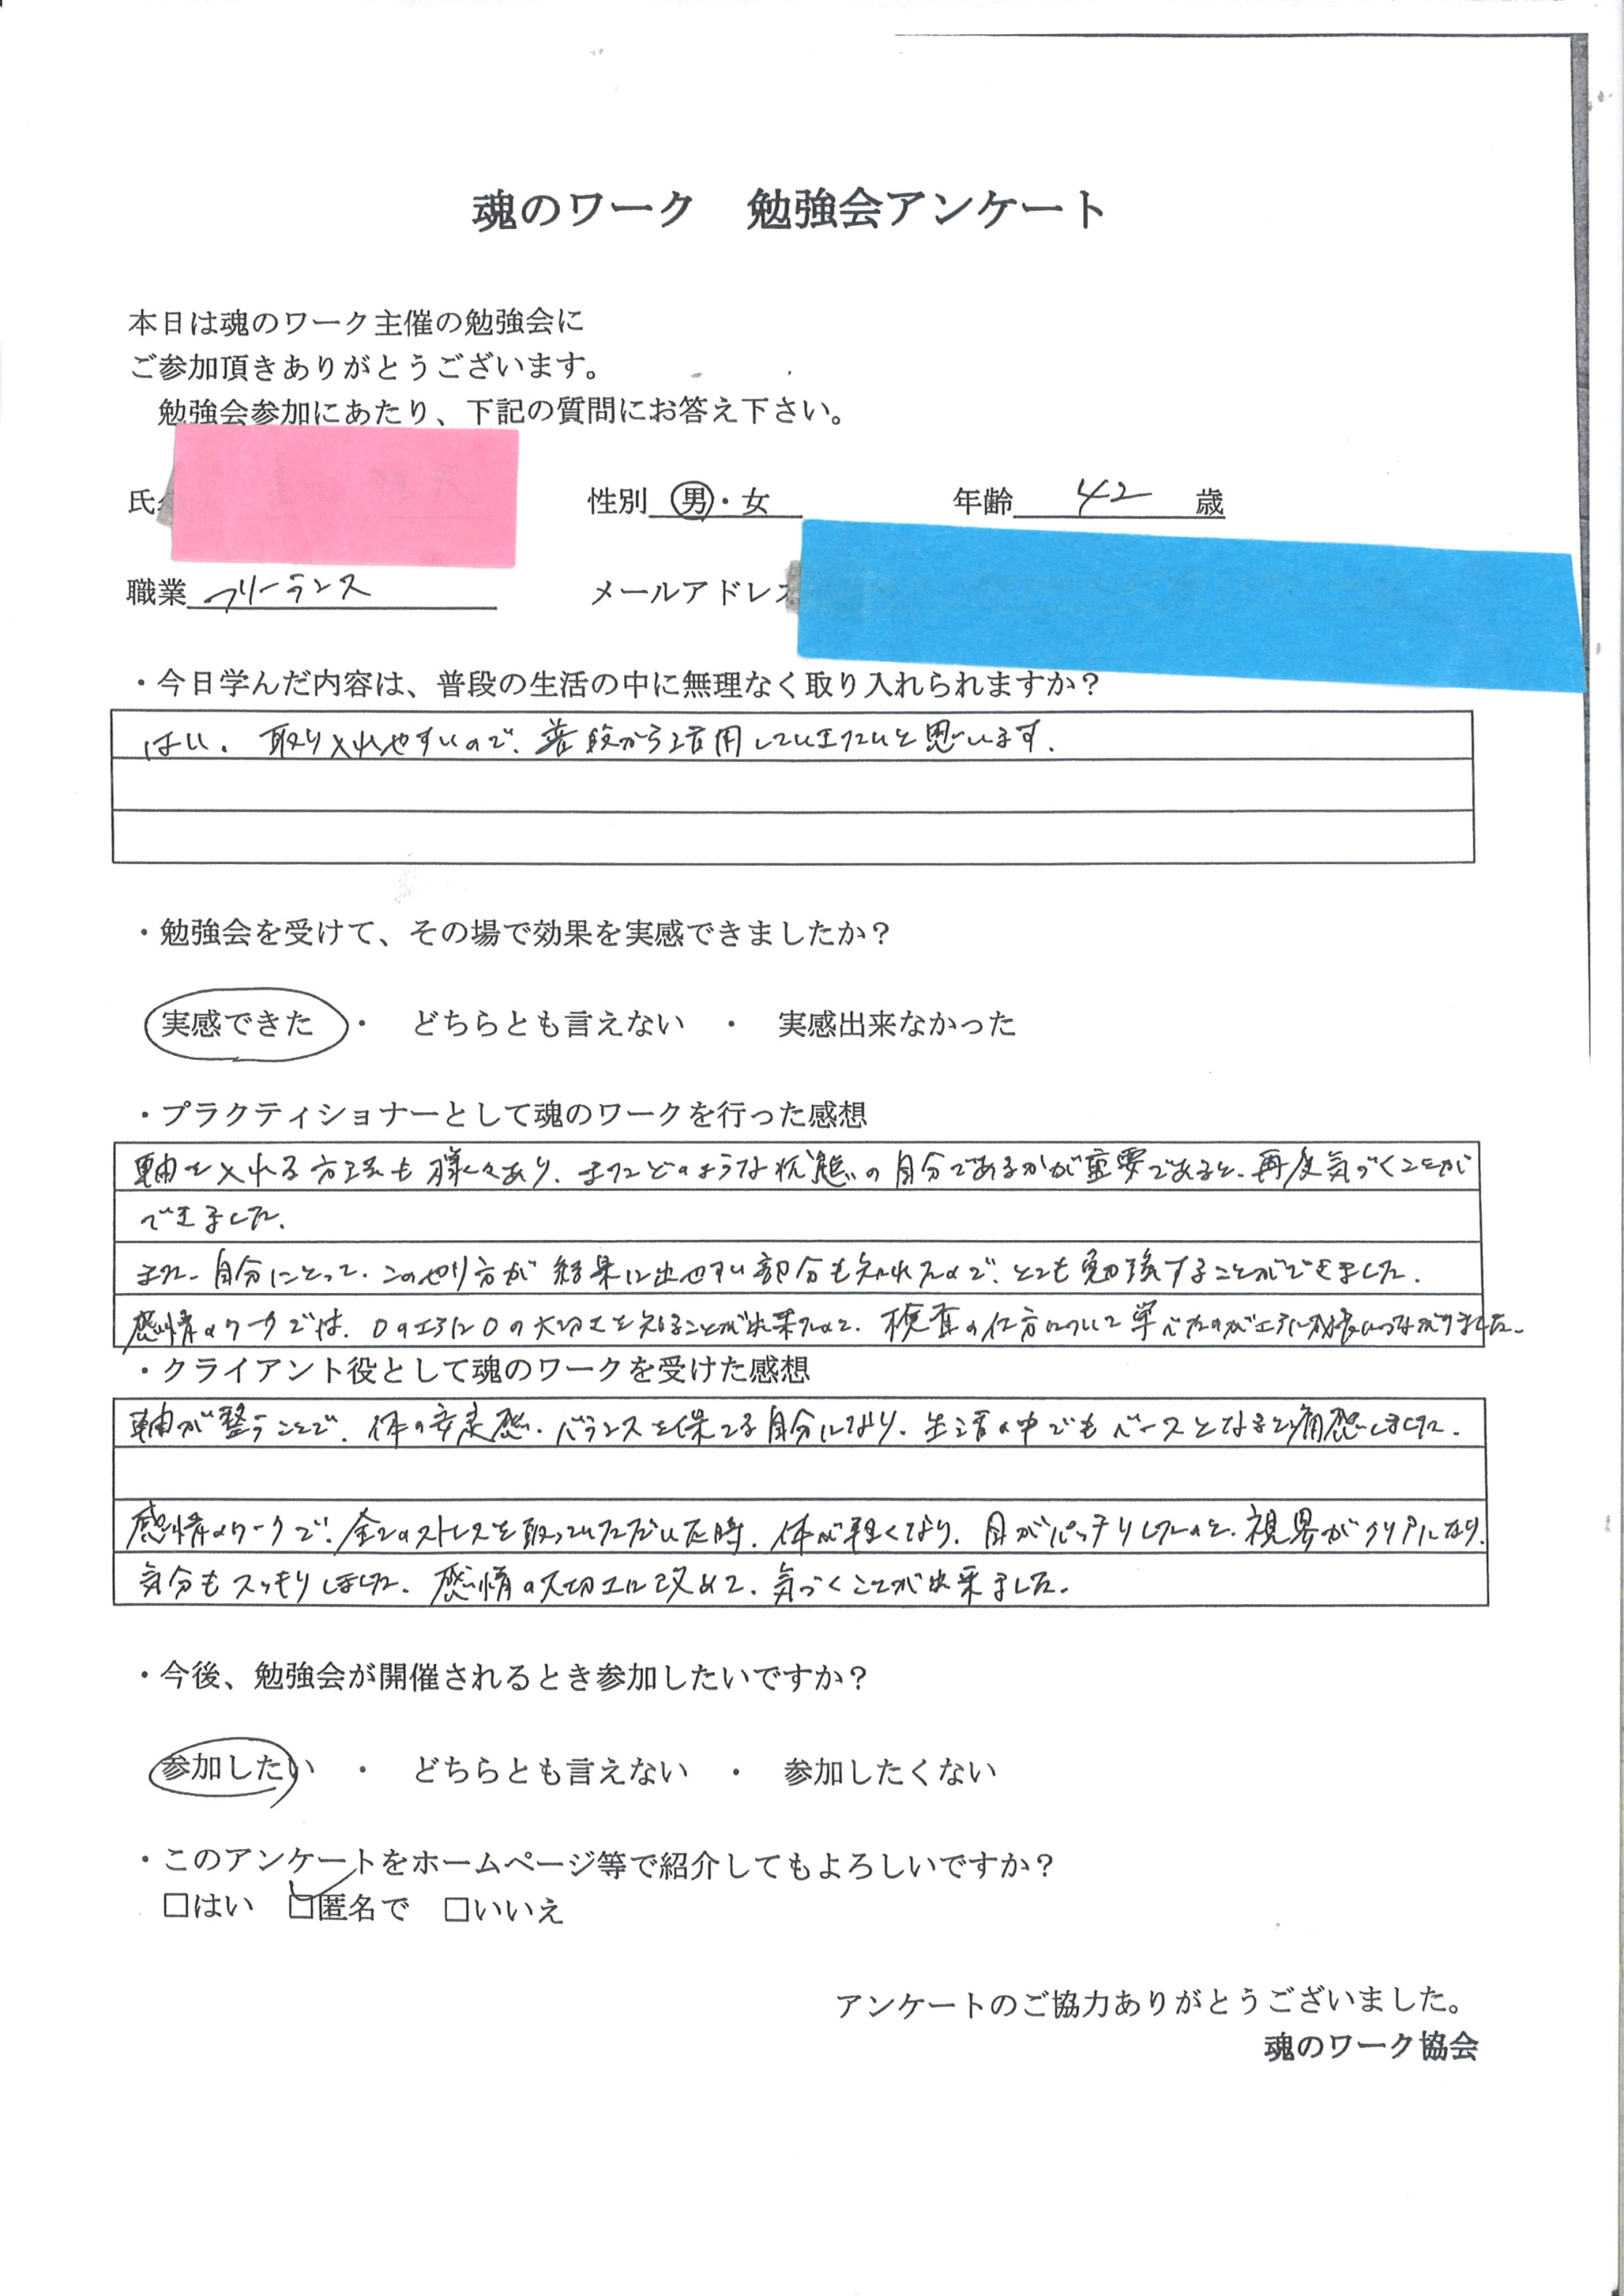 魂のワーク　勉強会アンケート
本日は魂のワーク主催の勉強会に
ご参加頂きありがとうございます。
勉強会参加にあたり、下記の質問にお答え下さい。
氏 性別 男・女 年齢 42 歳
職業 フリーランス メールアドレス
・今日学んだ内容は、普段の生活の中に無理なく取り入れられますか？
はい。取り入れやすいので、普段から活用していきたいと思います。
・勉強会を受けて、その場で効果を実感できましたか？
実感できた ・ どちらとも言えない ・ 実感出来なかった
・プラクティショナーとして魂のワークを行った感想
軸を入れる方法も様々あり、またどのような状態の自分であるかが重要であると、再度気づくことが
できました。
また、自分にとって、このやり方が結果に出やすい部分も知れたので、とても勉強することができました。
感情のワークでは、0のエネルの大切さを知ることが出来たのと、検査の仕方について学べたのが
・クライアント役として魂のワークを受けた感想
軸が整うことで、体の安定感、バランスを保てる自分になり、生活の中でもベースとなると痛感しました。
感情のワークで、全てのストレスを取っていただいた時、体が軽くなり、目がパッチリしたのと、視界がクリアになり、
気分もスッキリしました。感情の大切さに改めて、気づくことが出来ました。
・今後、勉強会が開催されるとき参加したいですか？
参加したい ・ どちらとも言えない ・ 参加したくない
・このアンケートをホームページ等で紹介してもよろしいですか？
□はい □匿名で □いいえ
アンケートのご協力ありがとうございました。
魂のワーク協会